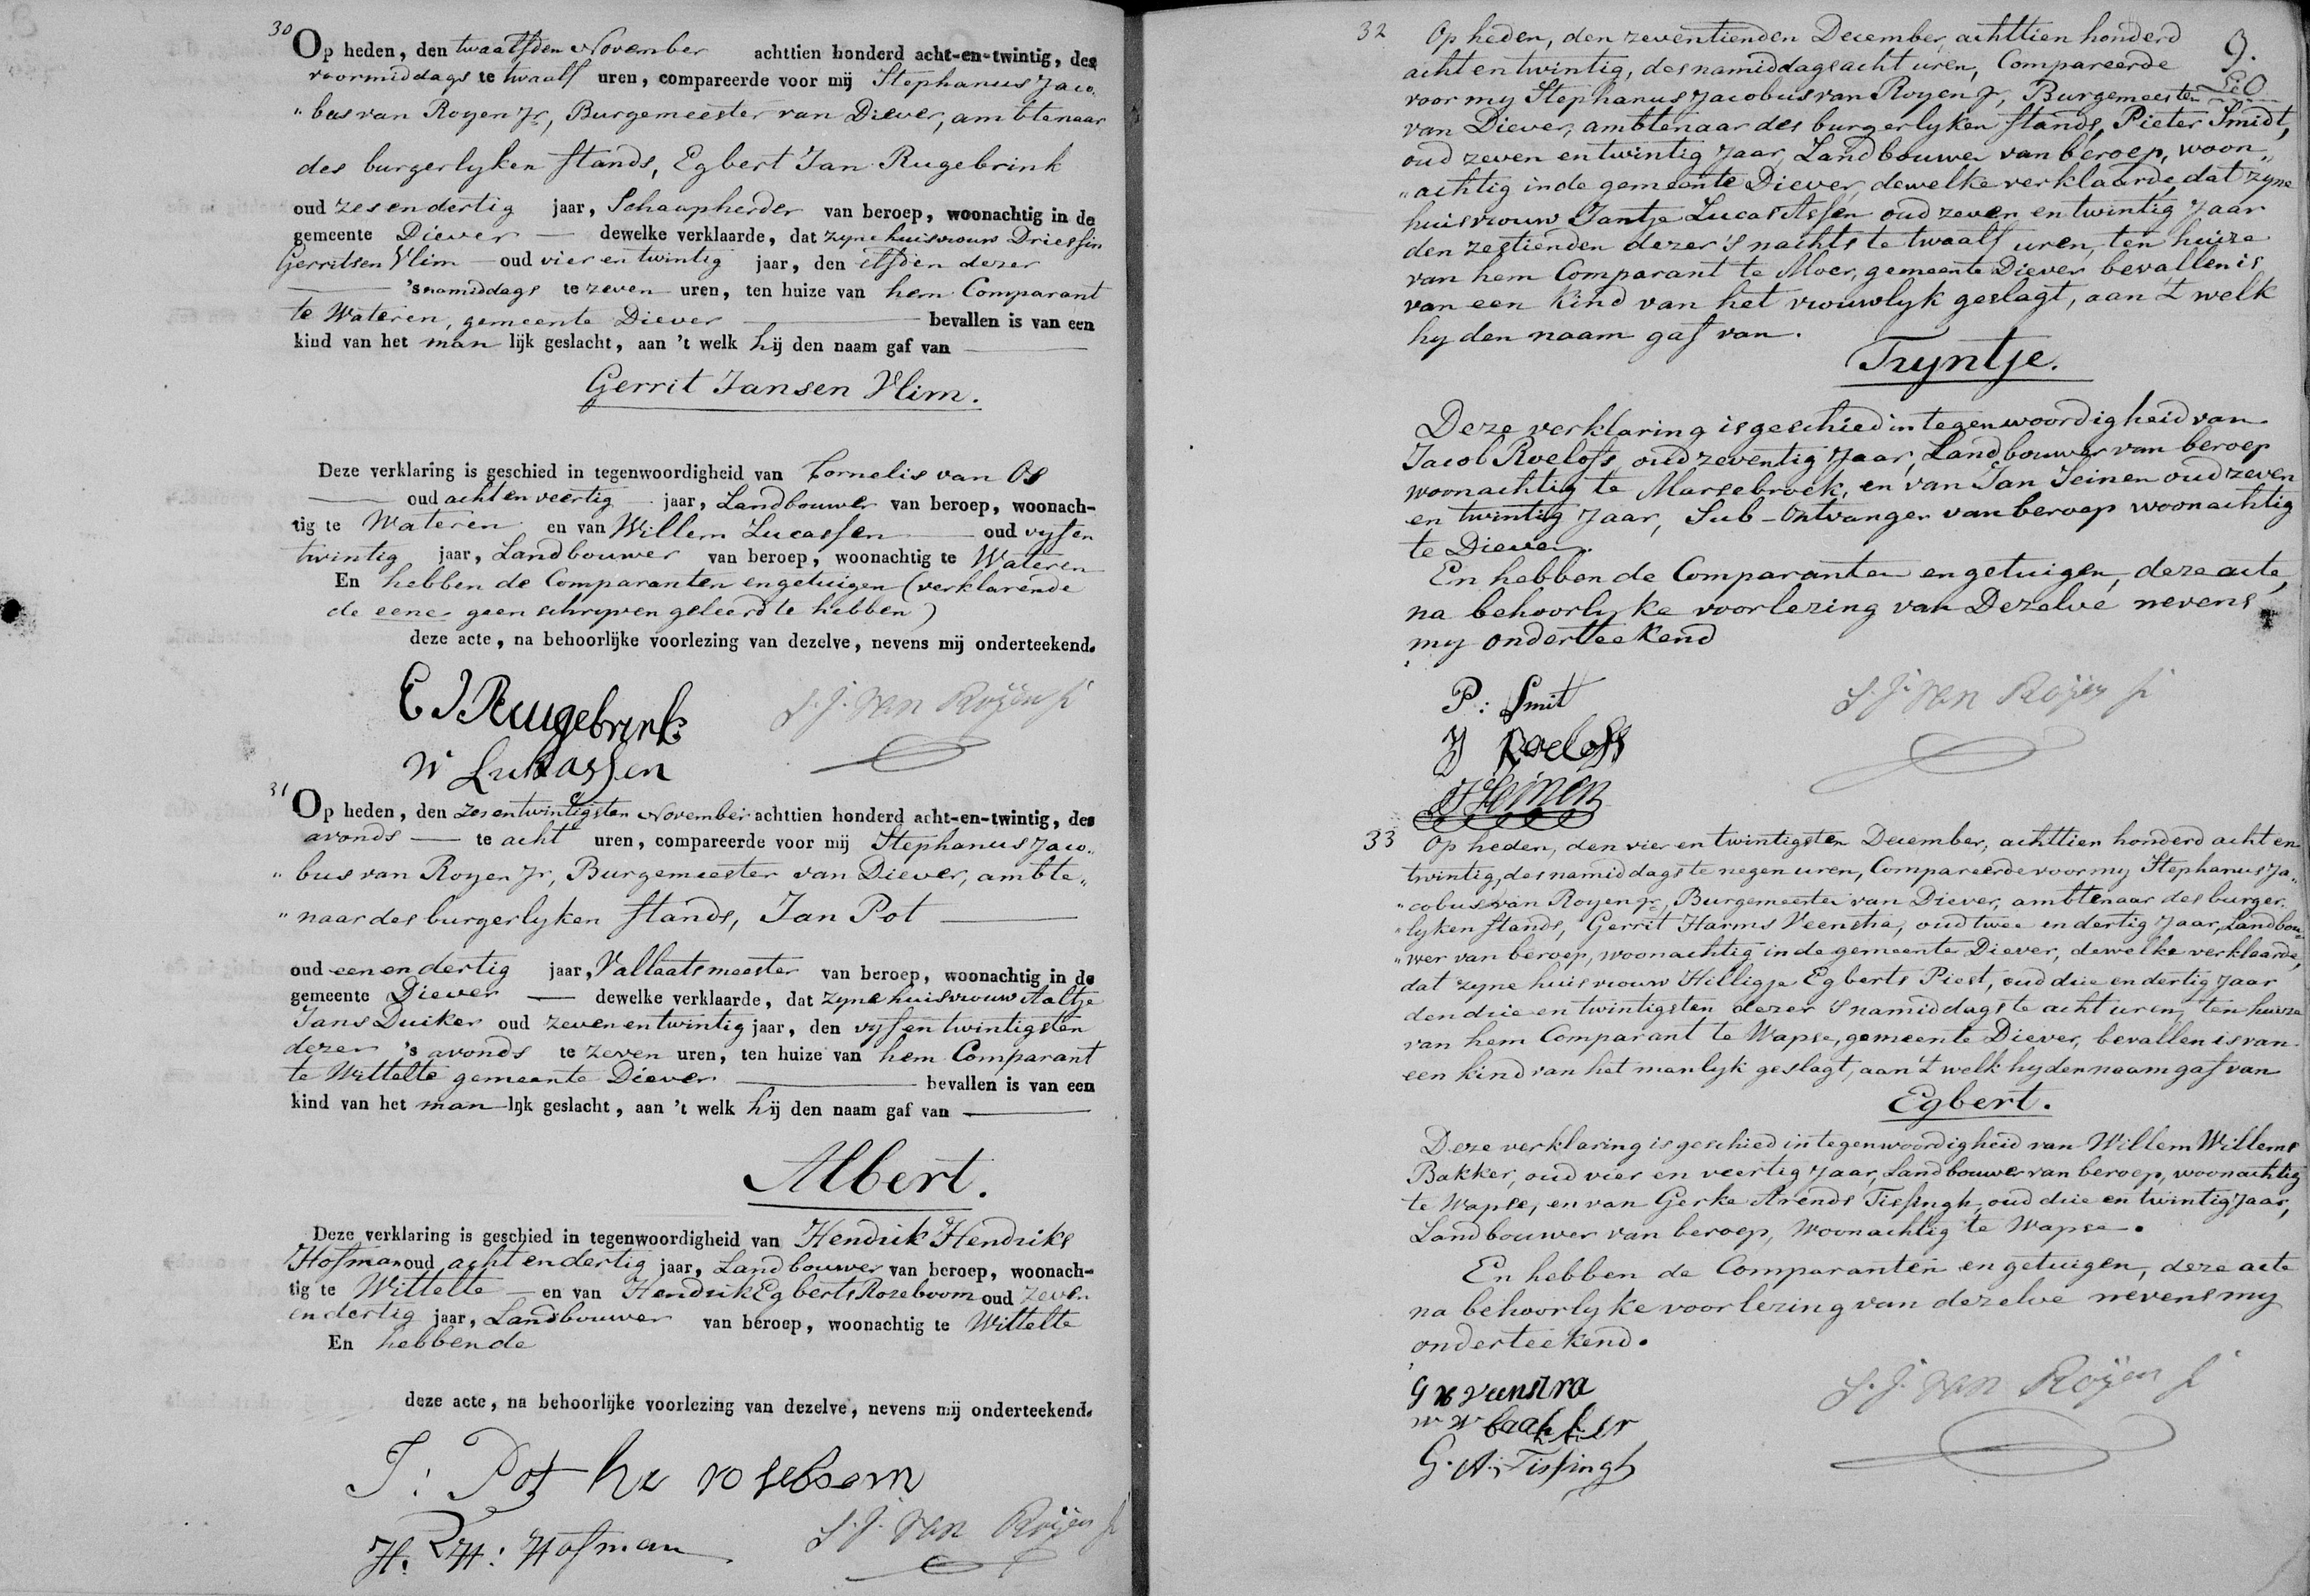 30
Op heden, den twaalfden November achttien honderd acht-en-twintig, des
voormiddags te twaalf uren, compareerde voor mij Stephanus Jaco„
„bus van Royen Jr, Burgemeester van Diever, ambtenaar
des burgerlyken stands, Egbert Jan Rugebrink
oud zes en dertig jaar, Schaapherder van beroep, woonachtig in de
gemeente Diever — dewelke verklaarde, dat zyne huisvrouw Driessien
Gerritsen Vlim — oud vier en twintig jaar, den elfden dezer
— 's namiddags te zeven uren, ten huize van hem Comparant
te Wateren, gemeente Diever — bevallen is van een
kind van het man lijk geslacht, aan 't welk hij den naam gaf van —
Gerrit Jansen Vlim.
Deze verklaring is geschied in tegenwoordigheid van Cornelis van Os
— oud acht en veertig jaar, Landbouwer van beroep, woonach-
tig te Wateren en van Willem Lucassen — oud vyf en
twintig jaar, Landbouwer van beroep, woonachtig te Wateren
En hebben de Comparanten en getuigen (verklarende
de eene geen schryven geleerd te hebben)
deze acte, na behoorlijke voorlezing van dezelve, nevens mij onderteekend.
E J Rugebrink S. J. van Royen Jr
W Lukassen
31
Op heden, den zes en twintigsten November achttien honderd acht-en-twintig, des
avonds — te acht uren, compareerde voor mij Stephanus Jaco„
„bus van Royen Jr, Burgemeester van Diever, ambte„
„naar des burgerlyken stands, Jan Pot —
oud een en dertig jaar, Vallaatsmeester van beroep, woonachtig in de
gemeente Diever — dewelke verklaarde, dat zyne huisvrouw Aaltje
Jans Duiker oud zeven en twintig jaar, den vyf en twintigsten
dezer 's avonds te zeven uren, ten huize van hem Comparant
te Wittelte gemeente Diever — bevallen is van een
kind van het man lijk geslacht, aan 't welk hij den naam gaf van —
Albert.
Deze verklaring is geschied in tegenwoordigheid van Hendrik Hendriks
Hofman oud acht en dertig jaar, Landbouwer van beroep, woonach-
tig te Wittelte — en van Hendrik Egberts Rozeboom oud zeven
en dertig jaar, Landbouwer van beroep, woonachtig te Wittelte
En hebben de
deze acte, na behoorlijke voorlezing van dezelve, nevens mij onderteekend.
J: Pot he roseboom
H: H: Hofman S. J. van Royen Jr
9.
32 Op heden, den zeventienden December, achttien honderd
acht en twintig, des namiddags acht uren, Compareerde
voor my Stephanus Jacobus van Royen Jr, Burgemeester
van Diever, ambtenaar des burgerlyken stands, Pieter Smidt,
oud zeven en twintig Jaar, Landbouwer van beroep, woon„
„achtig in de gemeente Diever, dewelke verklaarde, dat zyne
huisvrouw Jantje Lucas Assen oud zeven en twintig Jaar
den zestienden dezer 's nachts te twaalf uren, ten huize
van hem Comparant te Moer, gemeente Diever bevallen is
van een kind van het vrouwlyk geslagt, aan 't welk
hy den naam gaf van.
Tryntje.
Deze verklaring is geschied in tegenwoordigheid van
Jacob Roelofs, oud zeventig Jaar, Landbouwer van beroep
woonachtig te Marsebroek, en van Jan Seinen oud zeven
en twintig Jaar, Sub-Ontvanger van beroep woonachtig
te Diever.
En hebben de Comparanten en getuigen, deze acte,
na behoorlyke voorlezing van Dezelve nevens
my onderteekend
P: Smit S. J. van Royen Jr
J Roelofs
J Seinen
33 Op heden, den vier en twintigsten December, achttien honderd acht en
twintig, des namiddags te negen uren, Compareerde voor my Stephanus Ja„
„cobus van Royen Jr, Burgemeester van Diever, ambtenaar des burger„
„lyken stands, Gerrit Harms Veenstra, oud twee en dertig Jaar, Landbou„
„wer van beroep, woonachtig in de gemeente Diever, dewelke verklaarde,
dat zyne huisvrouw Hilligje Egberts Piest, oud drie en dertig Jaar
den drie en twintigsten dezer 's namiddags te acht uren, ten huize
van hem Comparant te Wapse, gemeente Diever, bevallen is van
een kind van het manlyk geslagt, aan 't welk hy den naam gaf van
Egbert.
Deze verklaring is geschied in tegenwoordigheid van Willem Willems
Bakker, oud vier en veertig Jaar, Landbouwer van beroep, woonachtig
te Wapse, en van Gerke Arends Tissingh, oud drie en twintig Jaar,
Landbouwer van beroep, Woonachtig te Wapse.
En hebben de Comparanten en getuigen, deze acte
na behoorlyke voorlezing van dezelve nevens my
onderteekend.
G H Veenstra S. J. van Royen Jr
W W baakker
G. A. Tissingh